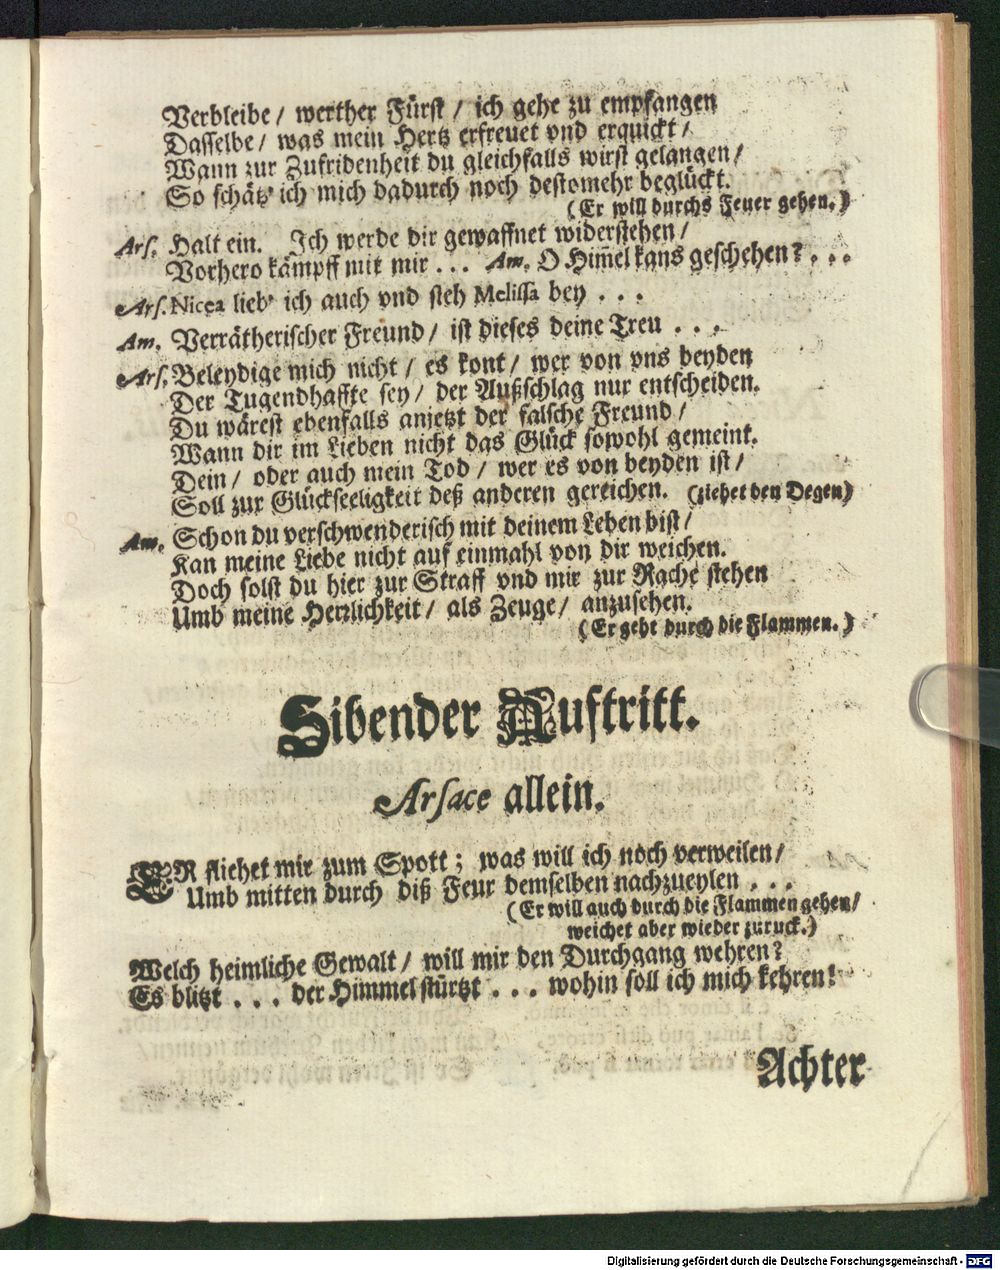 Verbleibe / werther Fürst / ich gehe zu empfangen
Dasselbe / was mein Hertz erfreuet vnd erquickt /
Wann zur Zufridenheit du gleichfalls wirst gelangen /
So schätz' ich mich dadurch noch destomehr beglückt.
(Er will durchs Feuer gehen.)
Ars. Halt ein. Ich werde dir gewaffnet widerstehen /
Vorhero kämpff mit mir ... Am. O Him̃el kans geschehen? ...
Ars. Nicea lieb' ich auch vnd steh Melissa bey ...
Am. Verrätherischer Freund / ist dieses deine Treu ...
Ars. Beleydige mich nicht / es kont / wer von vns beyden
Der Tugendhaffte sey / der Außschlag nur entscheiden.
Du wärest ebenfalls anjetzt der falsche Freund /
Wann dir im Lieben nicht das Glück sowohl gemeint.
Dein / oder auch mein Tod / wer es von beyden ist /
Soll zur Glückseeligkeit deß anderen gereichen. (ziehet den Degen)
Am. Schon du verschwenderisch mit deinem Leben bist /
Kan meine Liebe nicht auf einmahl von dir weichen.
Doch solst du hier zur Straff vnd mir zur Rache stehen
Umb meine Herrlichkeit / als Zeuge / anzusehen.
(Er geht durch die Flammen.)
Sibender Auftritt.
Arsace allein.
ER fliehet mir zum Spott; was will ich noch verweilen /
Umb mitten durch diß Feur demselben nachzueylen ...
(Er will auch durch die Flammen gehen /
weichet aber wieder zuruck.)
Welch heimliche Gewalt / will mir den Durchgang wehren?
Es blitzt ... der Himmel stürtzt ... wohin soll ich mich kehren!
Achter
Digitalisierung gefördert durch die Deutsche Forschungsgemeinschaft - DFG